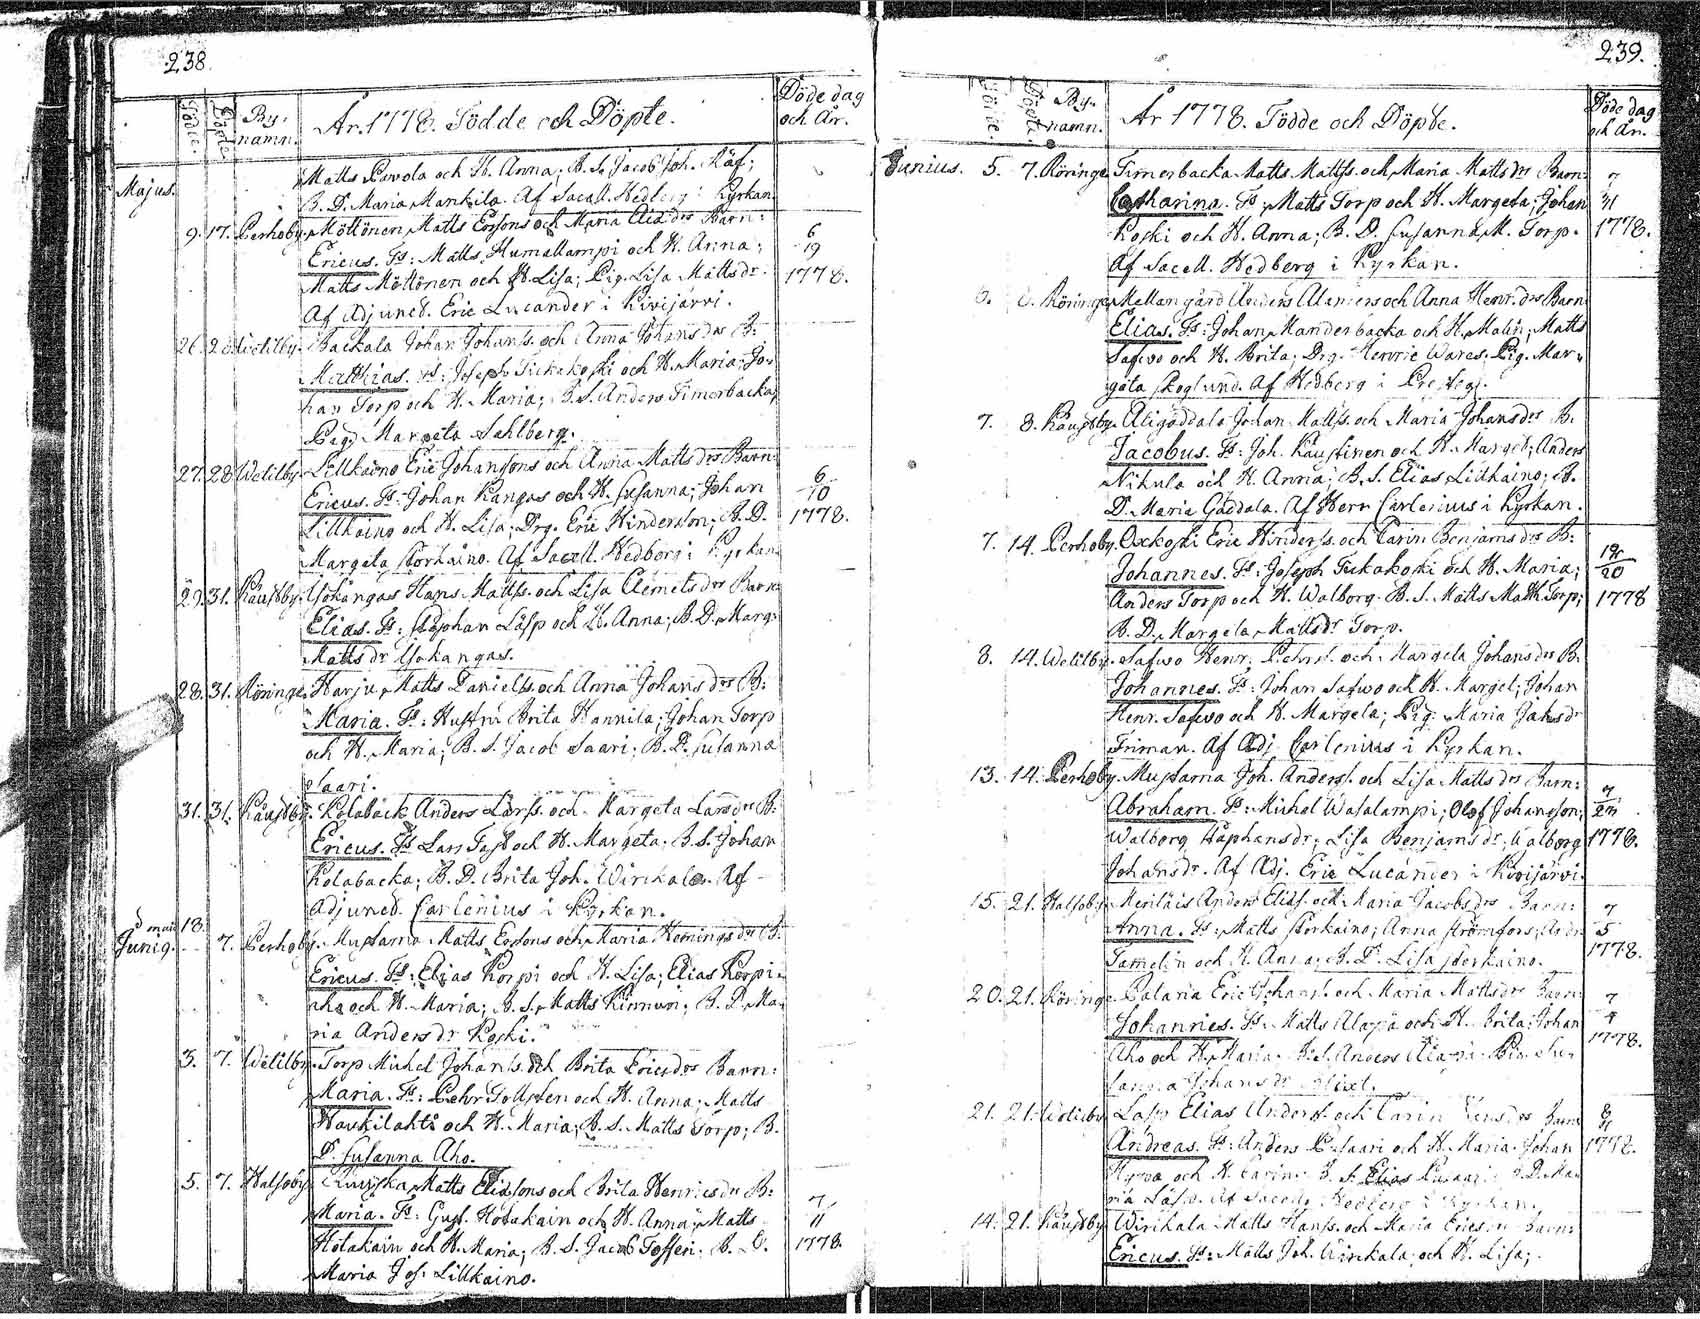 238
Födde. Döpte. By-namn. År 1778. Födde och Döpte. Döde dag och År.
Majus.
Matts Pavola och H. Anna; B. S. Jacob Joh. Räf;
B. D. Maria Mankila. Af Sacell. Hedberg i Kyrkan
9. 17. Perhoby. Möttönen Matts Erssons och Maria dr Barn: 6
Ericus. Fs: Matts Humallampi och H. Anna; 19
Matts Möttönen och H. Lisa; Pig. Lisa Mattsdr. 1778.
Af Adjunct. Eric Lucander i Kivijärvi.
26. Wetilby. Backala Johan Johanss. och Anna Johansdr B:
Matthias. Fs: Joseph Tuckakoski och H. Maria; Jo-
han Torp och H. Maria; B. S. Anders Timerbacka,
Pig. Margeta Sahlberg.
27. 28 Wetilby. Lillkaino Eric Johanssons och Anna Mattsdr Barn: 6
Ericus. Fs: Johan Kangas och H. Susanna; Johan 10
Lillkaino och H. Lisa; Drg. Eric Hindersson; B. D. 1778.
Margeta Storkaino. Af Sacell. Hedberg i Kyrkan
29. 31. Käustby. Ysokangas Hans Mattss. och Lisa Clemetsdr Barn
Elias. Fs: Stephan Läsp och H. Anna; B. D. Marg:
Mattsdr Ysokangas.
28. 31. Röringe. Harju Matts Danielss. och Anna Johansdr B:
Maria. Fs: Hustru Brita Hannila; Johan Torp
och H. Maria; B. S. Jacob Saari; B. D. Susanna
Saari.
31. 31. Käustby. Kolaback Anders Larss. och Margeta Larsdr B:
Ericus. Fs Lars Tast och H. Margeta; B. S. Johan
Kolabacka; B. D. Brita Joh. Wirkala. Af
Adjunct. Carlenius i Kyrkan.
d. maii 18.
Junij. 7. Perhoby. Mustama Matts Erssons och Maria Henningsdr B:
Ericus. Fs: Elias Korpi och H. Lisa; Elias Korpi-
aho och H. Maria; B. S. Matts Kinnuri; B. D. Ma-
ria Andersdr Koski.
3. 7. Wetilby. Torp Michel Johanss. och Brita Ericsdr Barn:
Maria. Fs: Pehr Gollsten och H. Anna; Matts
Haukilahti och H. Maria; B. S. Matts Torp; B.
D. Susanna Aho.
5. 7. Halsöby Matts Eliæsons och Brita Henricsdr B: 7
Maria. Fs: Gust. Hotakain och H. Anna; Matts 11
Hotakain och H. Maria; B. S. Jacob Tofferi. B. D. 1778.
Maria Jos: Lillkaino.
239.
Födde. Döpte. By-namn. År 1778. Födde och Döpte. Döde dag och År.
Junius. 5. 7. Röringe Timerbacka Matts Mattss. och Maria Mattsdr Barn: 7
Catharina. Fs: Matts Torp och H. Margeta; Johan 31
Koski och H. Anna; B. D. Susanna M. Torp. 1778.
Af Sacell. Hedberg i Kyrkan.
Röringe Mellangård Anders Adamers och Anna Henr.dr Barn
Elias. Fs: Johan Manderbacka och H. Malin; Matts
Safwo och H. Brita; Drg. Henric Wares. Pig. Mar-
gäta Skoglund. Af Hedberg i
7. 8. Käustby. Aligåddala Johan Mattss. och Maria Johansdr B.
Jacobus. Fs: Joh. Kaustinen och H. Marget; Anders
Nikula och H. Anna; B. S. Elias Lillkaino; B.
D. Maria Gåddala. Af Herr Carlenius i Kyrkan.
7. 14. Perhoby. Oxkoski Eric Hinderss. och Carin Benjamsdr B:
Johannes. Fs: Joseph Tuckakoski och H. Maria; 20
Anders Torp och H. Walborg. B. S. Matts Math. Torp; 1778
B. D. Margeta Mattsdr Torp.
8. 14. Wetilby. Safwo Henr. Pehrss. och Margeta Johansdr B.
Johannes. Fs: Johan Safwo och H. Marget; Johan
Henr. Safwo och H. Margeta; Pig. Maria Jakobsdr
Friman. Af Adj. Carlenius i Kyrkan.
13. 14. Perhoby. Mustama Joh. Anderss. och Lisa Mattsdr Barn: 7
Abraham. Fs: Michel Wasalampi; Olof Johansson; 23
Walborg Staphansdr; Lisa Benjamsdr; Walborg 1778.
Johansdr. Af Adj. Eric Lucander i Kivijärvi.
15. 21. Halsoby Meriläis Anders Eliæs. och Maria Jacobsdr Barn: 7
Anna. Fs: Matts Storkaino; Anna Strömfors; 5
Tamelin och H. Anna; B. D. Lisa Storkaino. 1778.
20. 21. Röringe Pataria Eric Johanss. och Maria Mattsdr Barn: 7
Johannes. Fs: Matts Alapä och H. Brita; Johan 4
Aho och H. Maria. B. S. Anders Pig. Su- 1778.
sanna Johansdr
21. 21. Wetilby Läsp Elias Anderss. och Carin dr Barn 8
Andreas. Fs: Anders Pusaari och H. Maria. Johan 1778.
och H. Carin; B. S. Elias Pusaari; B. D. Ma-
ria Läsp. Af Sacell. Hedberg i Kyrkan.
14. 21. Käustby Wirikala Matts Hanss. och Maria Ericsdr Barn:
Ericus. Fs: Matts Joh. Wirikala och H. Lisa;